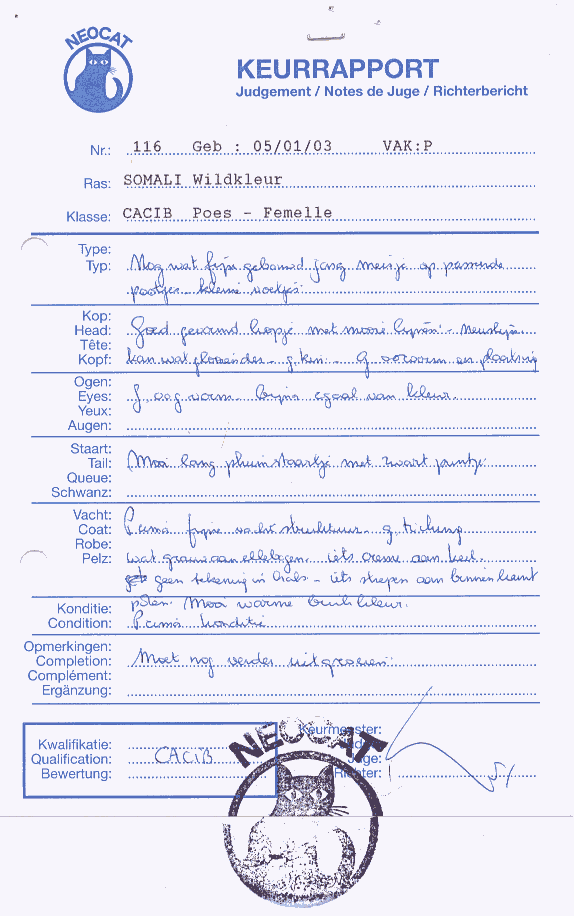 NEOCAT
KEURRAPPORT
Judgement / Notes de Juge / Richterbericht
Nr.: 116 Geb : 05/01/03 VAK:P
Ras: SOMALI Wildkleur
Klasse: CACIB Poes - Femelle
Type:
Typ: Nog wat fijn gebouwd jong meisje op passende
pootjes. kleine voetjes.
Kop:
Head: Goed gevormd kopje met mooie lijnen. - Neuslijn
Tête:
Kopf: kan wat glooiender - g. kin - g oorvorm en plaatsing
Ogen:
Eyes: g. oog vorm. bijna egaal van kleur.
Yeux:
Augen:
Staart:
Tail: Mooi lang pluimstaartje met zwart puntje.
Queue:
Schwanz:
Vacht:
Coat: Prima fijne vacht struktuur. g. ticking
Robe:
Pelz: wat grauw aan ellebogen. iets creme aan keel.
geen tekening in hals - iets strepen aan binnenkant
poten. Mooi warme buik kleur.
Konditie:
Condition: Prima konditie
Opmerkingen:
Completion: Moet nog verder uitgroeien.
Complément:
Ergänzung:
Kwalifikatie:
Qualification: CACIB
Bewertung:
Keurmeester:
Juge:
Richter:
NEOCAT